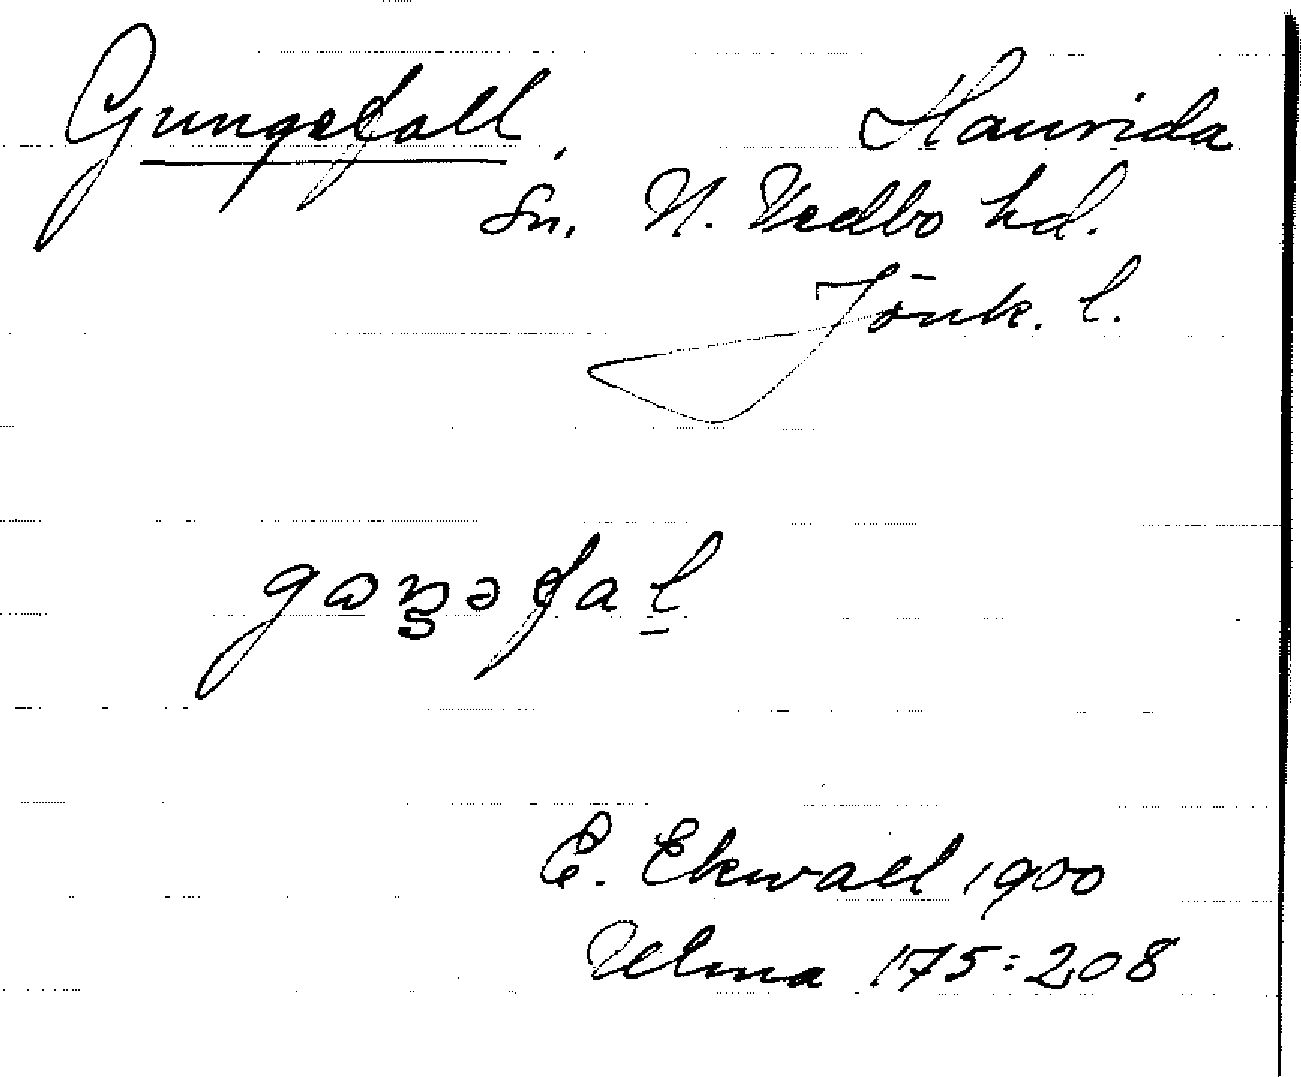 Gungefall, Haurida
sn. N. Vedbo hd.
Jönk. l.
E. Ekwall 1900
Ulma 175:208